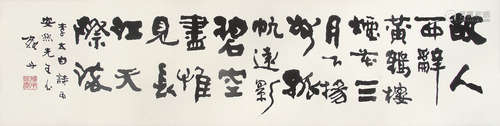 故人
西辭
黃鶴樓
煙花三
月下揚
州孤
帆遠影
碧空
盡惟
見長
江天
際流
李太白詩
安然先生